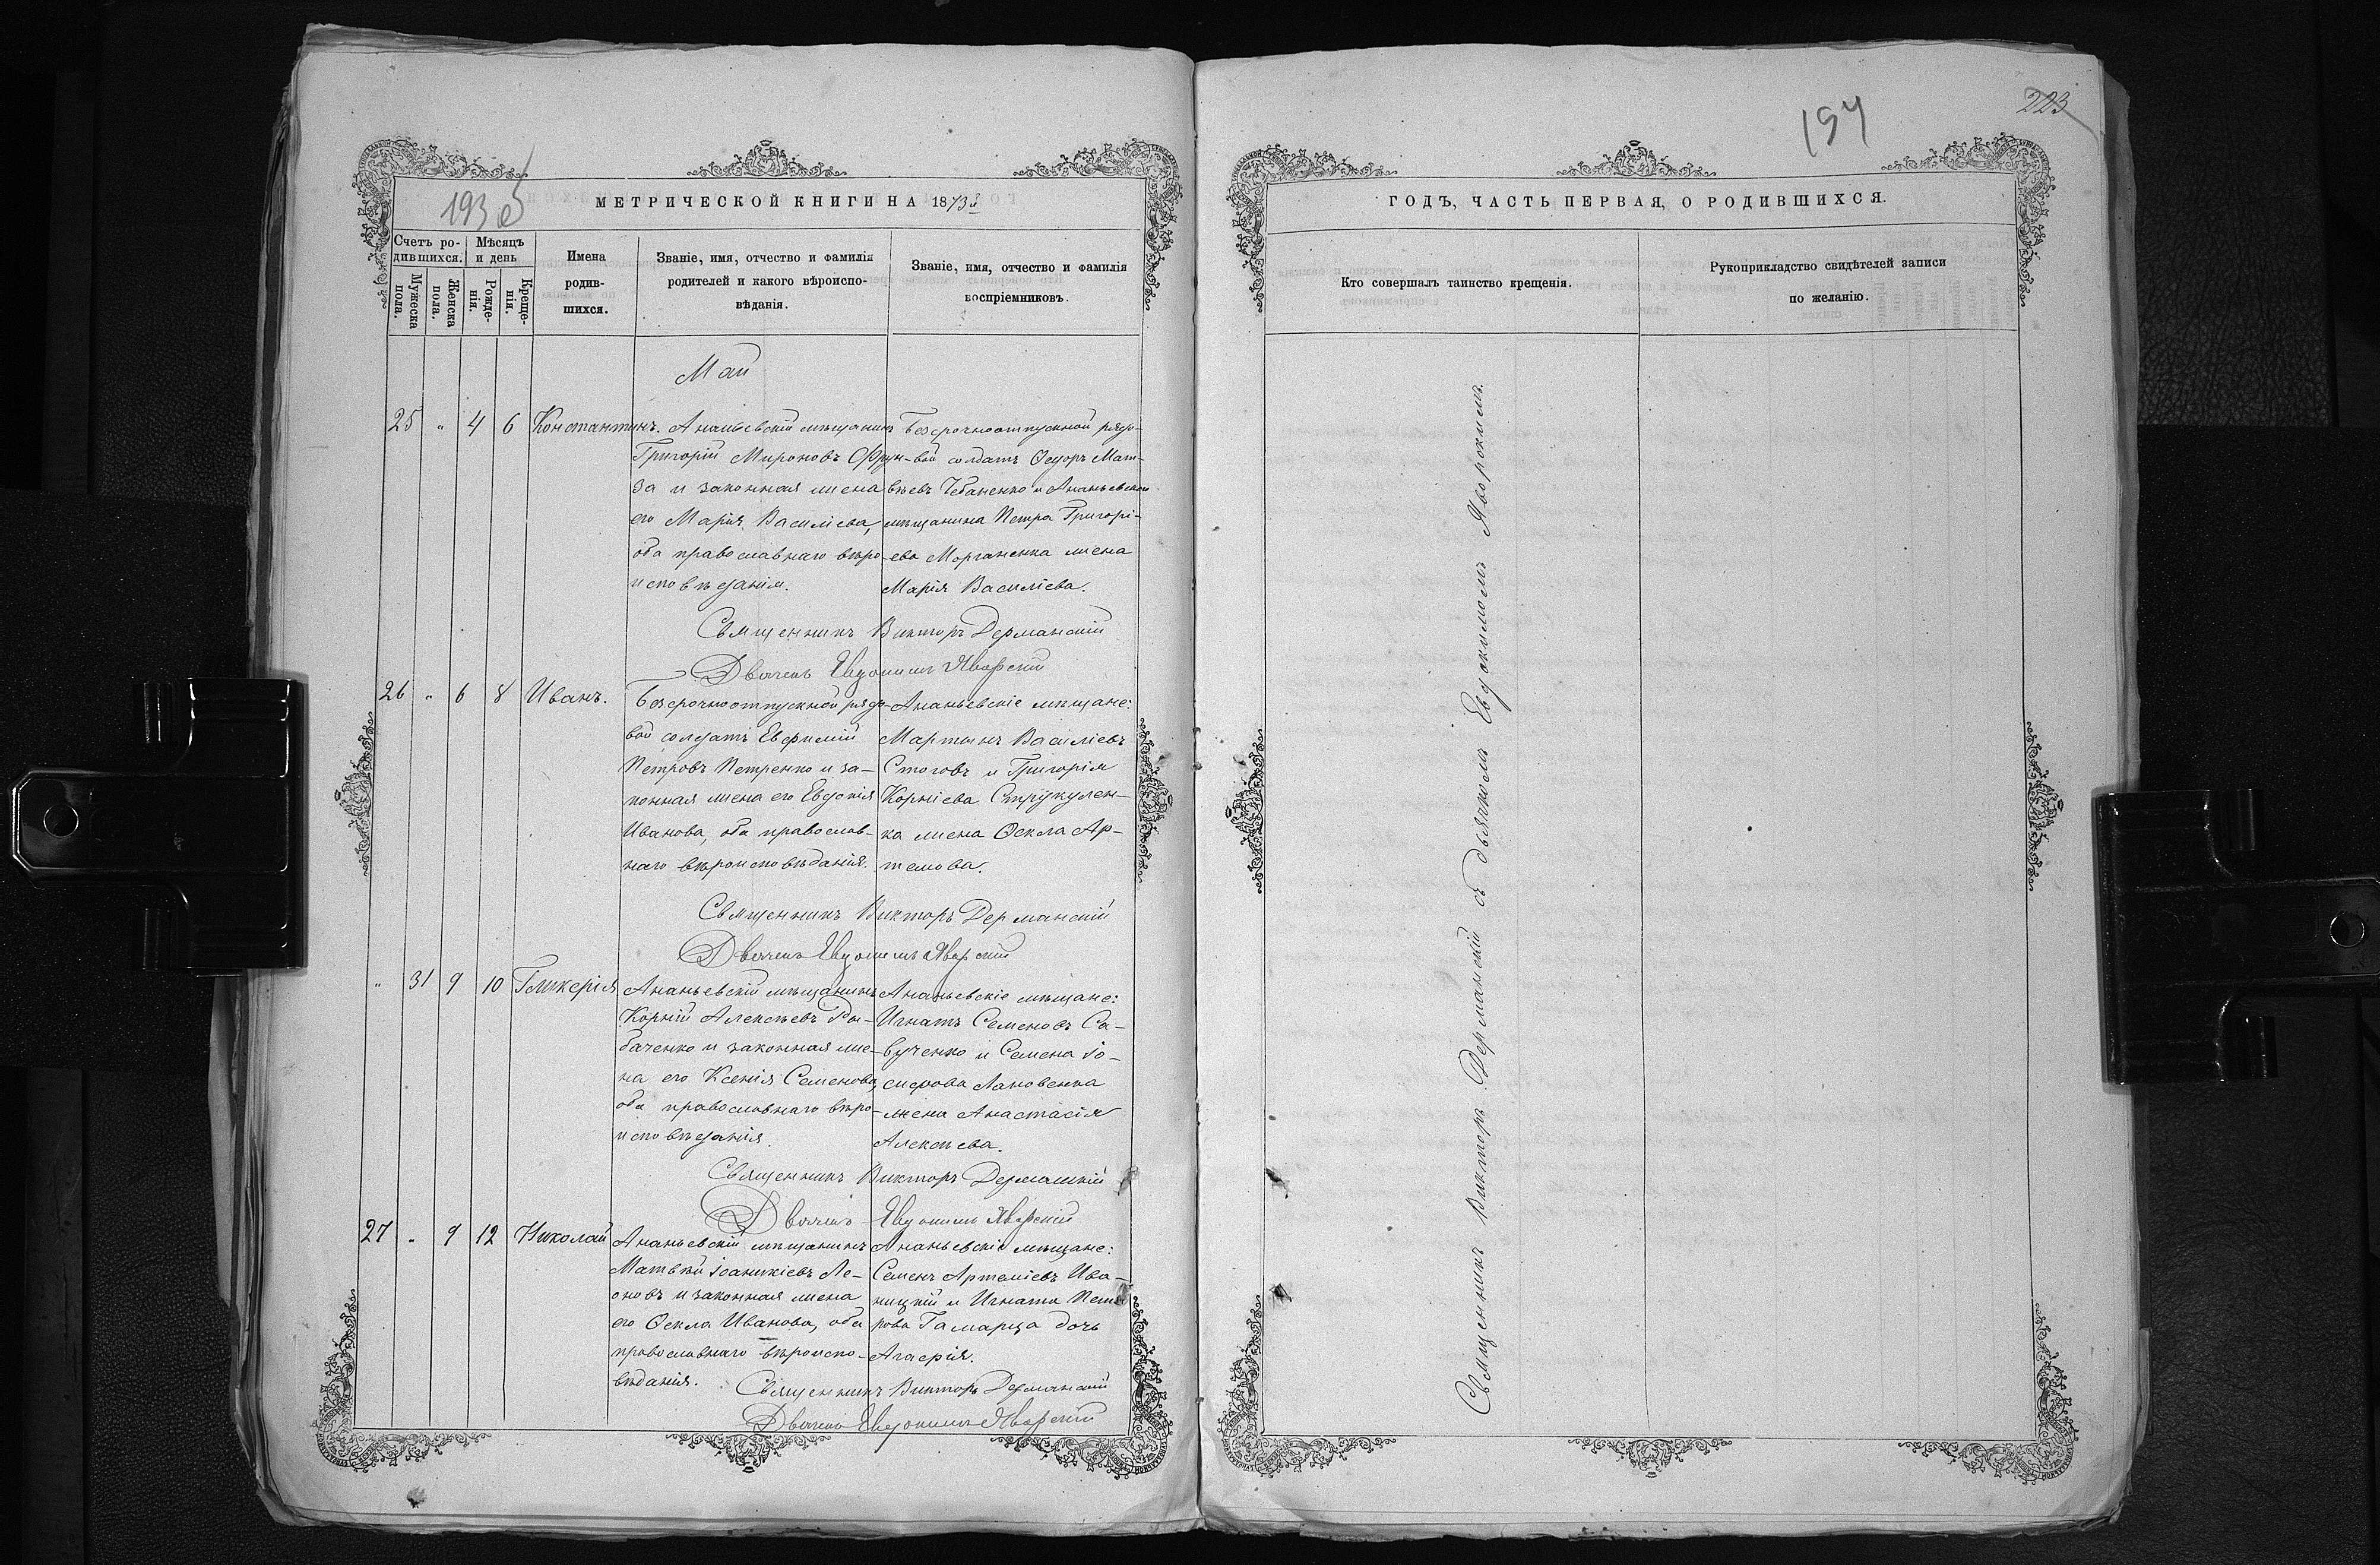 193 об
МЕТРИЧЕСКОЙ КНИГИ НА 1873
Счетъ ро-
дившихся.
Мужеска
пола.
Женска
пола.
Мѣсяцъ
и день
Рожде-
нія.
Креще-
нія.
Имена
родив-
шихся.
Званіе, имя, отчество и фамилія
родителей и какого вѣроиспо-
вѣданія.
Званіе, имя, отчество и фамилія
воспріемниковъ.
Май
25 „ 4 6 Константинъ.
Ананьевскій мѣщанинъ
Григорій Мироновъ Фрун-
за и законная жена
его Марія Василіева,
оба православнаго вѣро-
исповѣданія.
Безсрочноотпускной рядо-
вой солдатъ Ѳедоръ Мат-
вѣевъ Чебаненко и Ананьевскаго
мѣщанина Петра Григорі-
ева Морганенка жена
Марія Василіева.
Священникъ Викторъ Дерманскій
Дьячекъ Евдокимъ Яворскій
26 „ 6 8 Иванъ.
Безсрочноотпускной рядо-
вой солдатъ Евфимій
Петровъ Петренко и за-
конная жена его Евдокія
Иванова, оба православ-
наго вѣроисповѣданія.
Ананьевскіе мѣщане:
Мартынъ Василіевъ
Стоговъ и Григорія
Корніева Струкулен-
ка жена Ѳекла Ар-
темова.
Священникъ Викторъ Дерманскій
Дьячекъ Евдокимъ Яворскій
„ 31 9 10 Гликерія
Ананьевскій мѣщанинъ
Корній Алексѣевъ Ры-
баченко и законная же-
на его Ксенія Семенова,
оба православнаго вѣро-
исповѣданія.
Ананьевскіе мѣщане:
Игнатъ Семеновъ Са-
вученко и Семена Іо-
сифова Лановенка
жена Анастасія
Алексѣева.
Священникъ Викторъ Дерманскій
Дьячекъ Евдокимъ Яворскій
27 „ 9 12 Николай
Ананьевскій мѣщанинъ
Матвѣй Іоаникіевъ Ле-
оновъ и законная жена
его Ѳекла Иванова, оба
православнаго вѣроиспо-
вѣданія.
Ананьевскіе мѣщане:
Семенъ Артеміевъ Ива-
ницкій и Игната Пет-
рова Гамарца дочь
Агафія.
Священникъ Викторъ Дерманскій
Дьячекъ Евдокимъ Яворскій
194
223
ГОДЪ, ЧАСТЬ ПЕРВАЯ, О РОДИВШИХСЯ.
Кто совершалъ таинство крещенія.
Рукоприкладство свидѣтелей записи
по желанію.
Священникъ Викторъ Дерманскій съ дьячкомъ Евдокимомъ Яворскимъ.